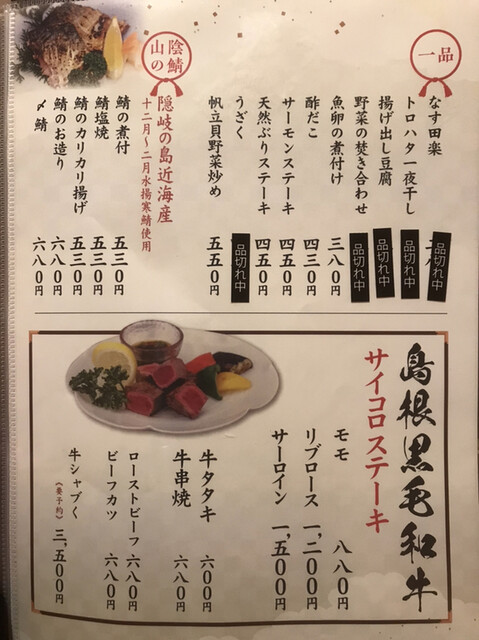 一品
なす田楽 品切れ中
トロハタ一夜干し 品切れ中
揚げ出し豆腐 品切れ中
野菜の焚き合わせ 品切れ中
魚卵の煮付け 三八〇円
酢だこ 四三〇円
サーモンステーキ 四五〇円
天然ぶりステーキ 四五〇円
うざく 品切れ中
帆立貝野菜炒め 五五〇円
山陰の鯖
隠岐の島近海産
十二月〜二月水揚寒鯖使用
鯖の煮付 五三〇円
鯖塩焼 五三〇円
鯖のカリカリ揚げ 五三〇円
鯖のお造り 六八〇円
〆鯖 六八〇円
島根黒毛和牛
サイコロステーキ
モモ 八八〇円
リブロース 一,二〇〇円
サーロイン 一,五〇〇円
牛タタキ 六〇〇円
牛串焼 六八〇円
ローストビーフ 六八〇円
ビーフカツ 六八〇円
牛シャブく
(要予約) 三,五〇〇円